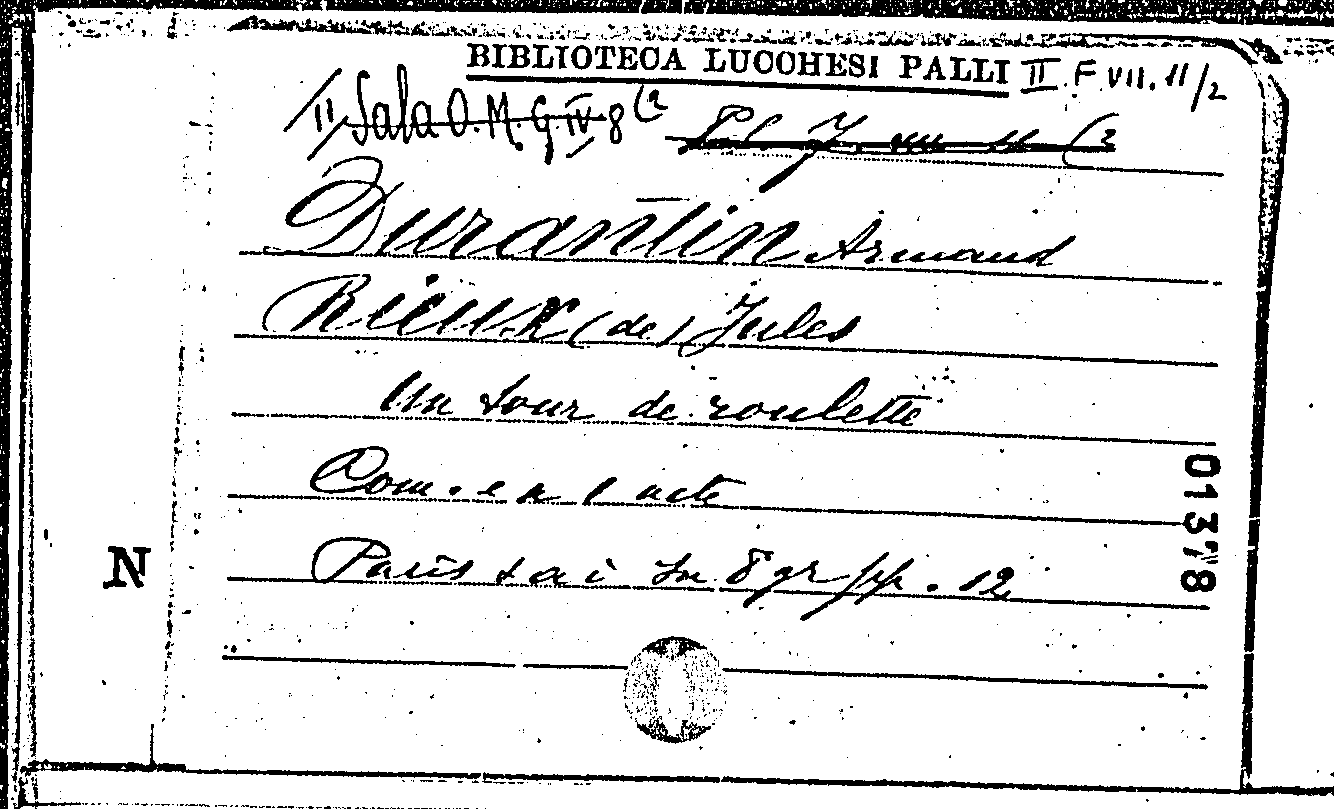 BIBLIOTECA LUCCHESI PALLI II F VII. 11/2
II Sala O. M. G. IV 8 (2
Durantin Armand
Rieux (de) Jules
Un tour de roulette
Com. en 1 acte
Paris s a i In 8 gr pp. 12
01378
N